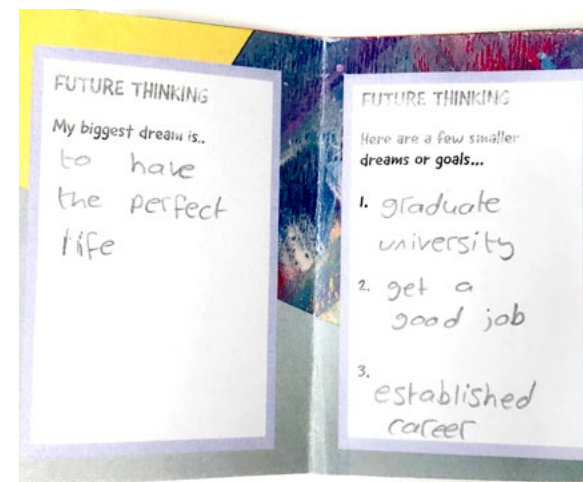 FUTURE THINKING
My biggest dream is..
to have
the perfect
life
FUTURE THINKING
Here are a few smaller
dreams or goals...
1. graduate
university
2. get a
good job
3.
established
career